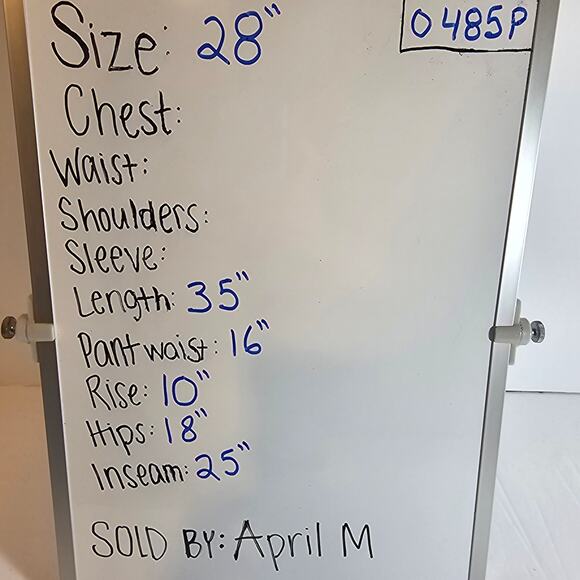 Size: 28"
0 485P
Chest:
Waist:
Shoulders:
Sleeve:
Length: 35"
Pant waist: 16"
Rise: 10"
Hips: 18"
Inseam: 25"
SOLD BY: April M